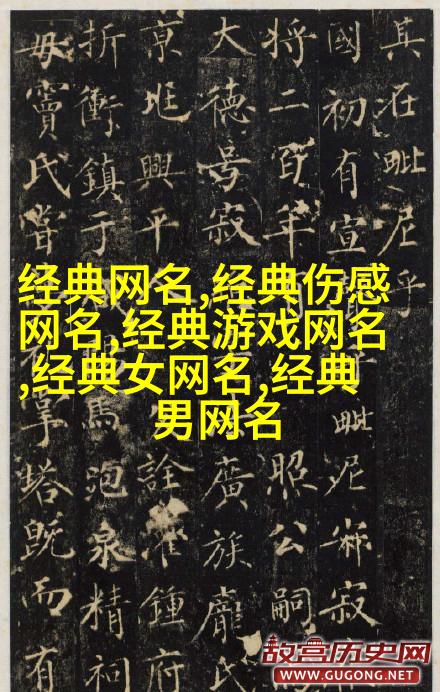 其在毗尼乎
國初有宣毗尼寂
将二百年照公嗣
大德号寂廣族龐氏
京兆興平人詮灌鍾府
折衝鎮于馬泡泉精祠
毋竇氏嘗掌塔既而有
经典网名,经典伤感
网名,经典游戏网名
,经典女网名,经典
男网名
故宫历史网
WWW.GUGONG.NET